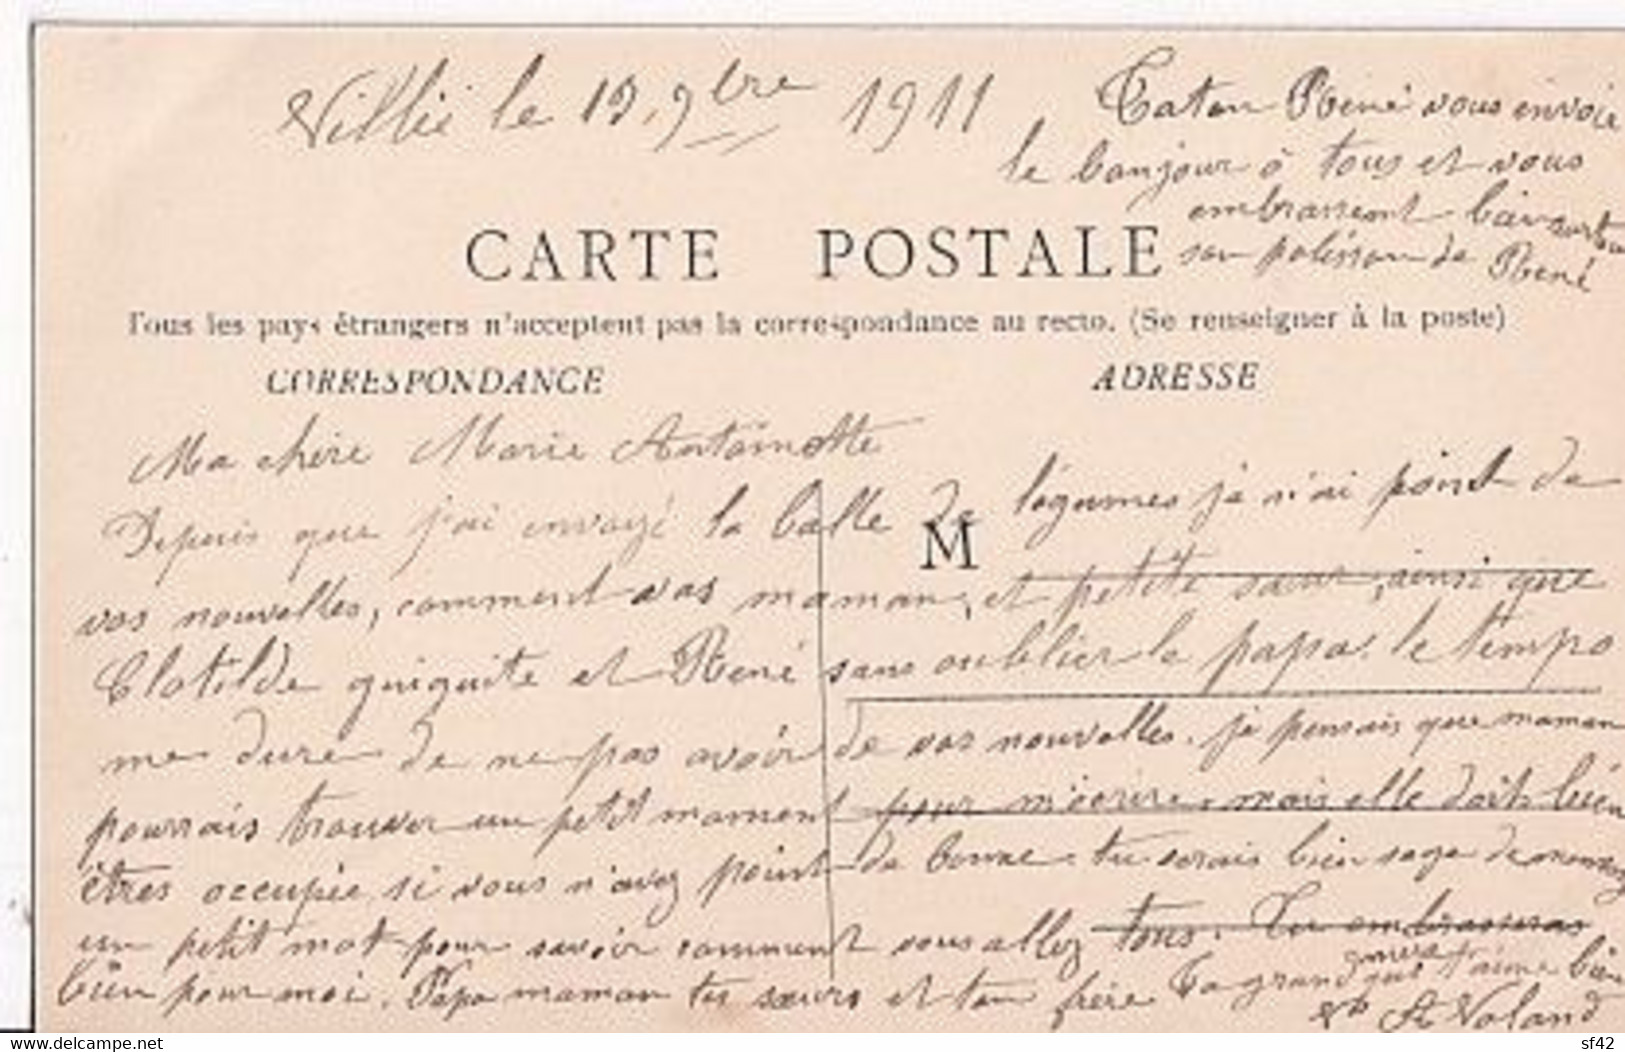 Villié le 19, 9bre 1911
Taton René vous envoie
le bonjour à tous et vous
embrassent bien surtout
son polisson de René
CARTE POSTALE
Tous les pays étrangers n'acceptent pas la correspondance au recto. (Se renseigner à la poste)
CORRESPONDANCE
ADRESSE
M
Ma chère Marie Antoinette
Depuis que j'ai envoyé la balle de légumes je n'ai point de
vos nouvelles, comment vas maman, et petite sœur, ainsi que
Clotilde guiguite et René sans oublier le papa. le temps
me dure de ne pas avoir de vos nouvelles. je pensais que maman
pourrais trouver un petit moment pour m'écrire. mais elle doit bien
êtres occupée, si vous n'avez point de bonne. tu serais bien sage de
un petit mot pour savoir comment vous allez tous. Tu embrasseras
bien pour moi. Papa maman tes sœurs et ton frère Ta grand mère qui t'aime bien
Vve A Voland
sf42
delcampe.net